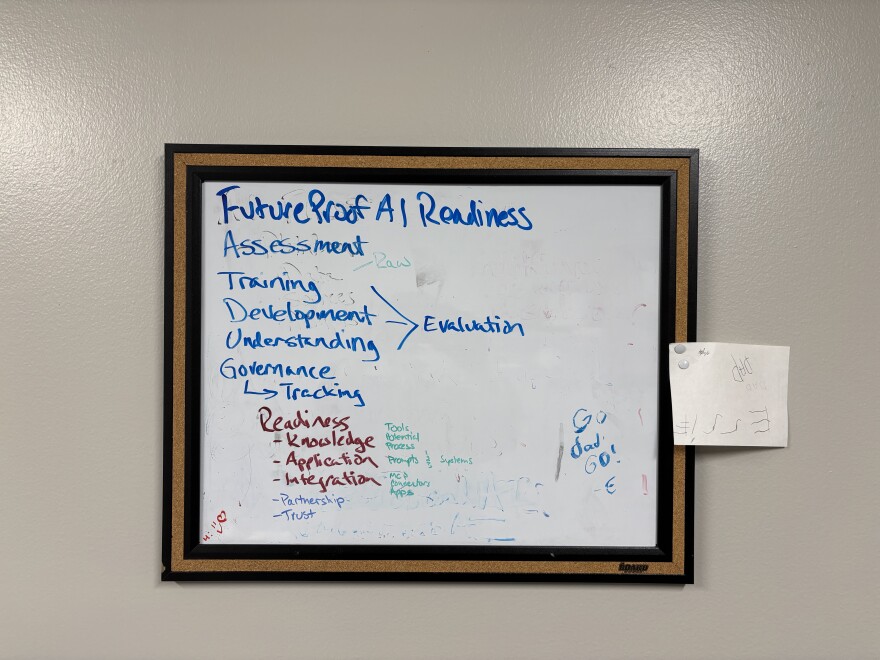 FutureProof AI Readiness
Assessment
Raw
Training
Development
Understanding
Evaluation
Governance
↳ Tracking
Readiness
- Knowledge
Tools
Potential
Process
- Application
Prompts & Systems
- Integration
- MCP
Connectors
Apps
- Partnership
- Trust
Go
dad
GO!
-E
hi
THE BOARD
DAD